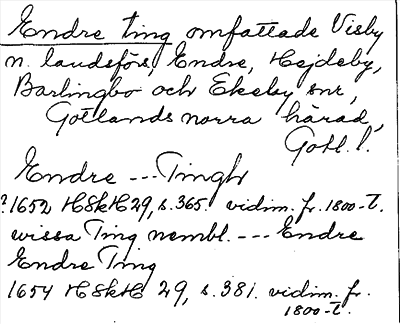 Endre ting omfattade Visby
n. landsförs, Endre, Hejdeby,
Barlingbo och Ekeby snr,
Gotlands norra härad,
Gotl. l.
Endre --- Tingh
?1652 HSkH 29, s. 365. vidim. fr. 1800-t.
wissa Ting nembl. --- Endre
Endre Ting
1654 HSkH 29, s. 381. vidim. fr.
1800-t.